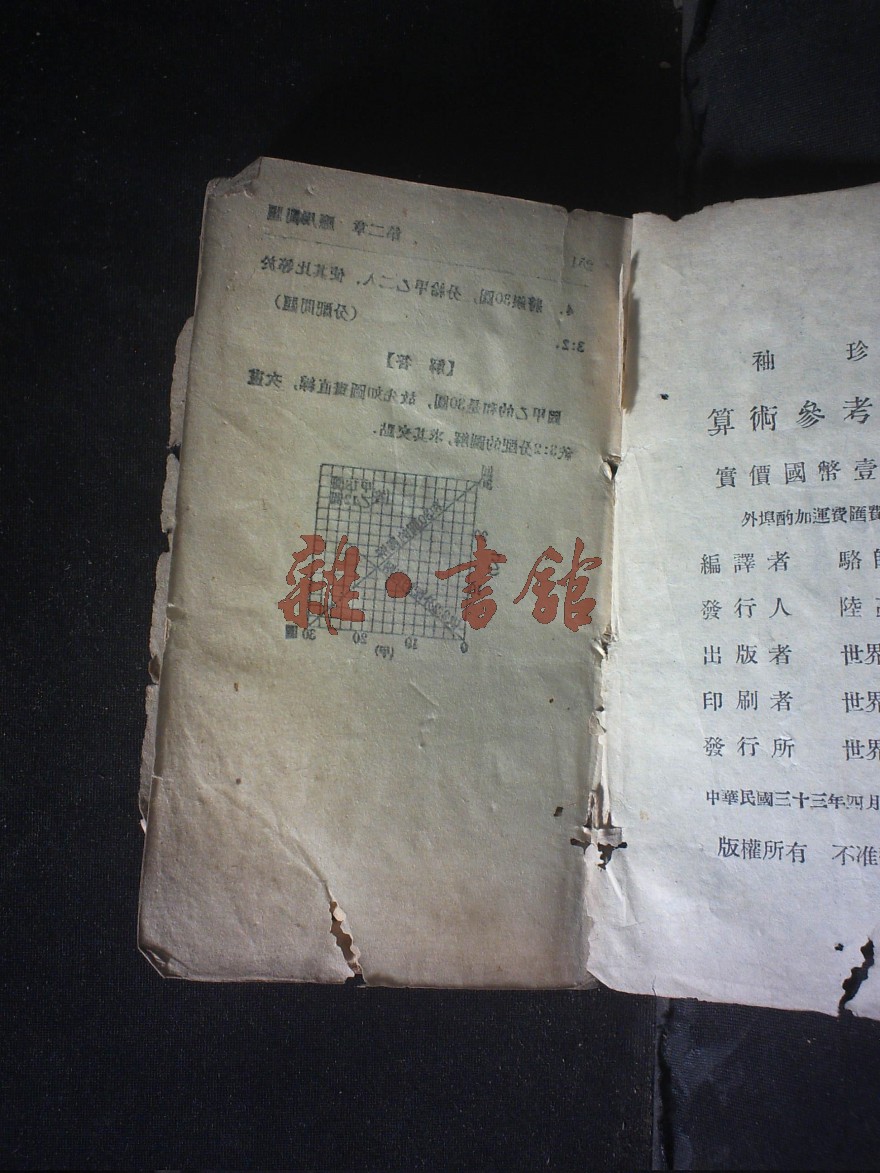 第二章 應用問題
251
4. 將銀30圓, 分給甲乙二人, 使其比等於
3:2. (分配問題)
【解答】
圓甲乙的和是30圓, 故先如圖畫直線, 次畫
3:2分配的圖解, 求其交點.
甲18圓
乙12圓
0 10 20 30 圓
(甲)
雜·書館
袖珍
算術參考
實價國幣壹
外埠酌加運費匯費
編譯者 駱師
發行人 陸
出版者 世界
印刷者 世界
發行所 世界
中華民國三十三年四月
版權所有 不准